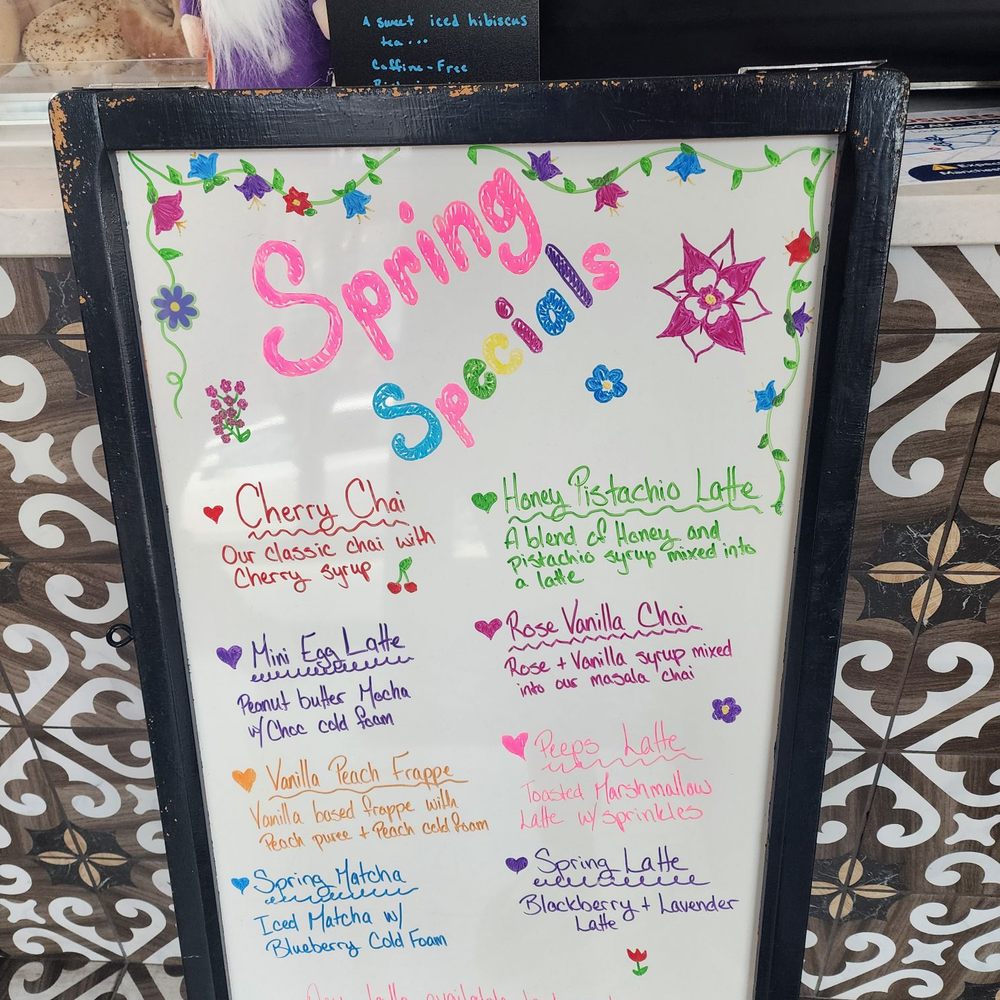 A sweet iced hibiscus
tea...
Caffine-Free
Spring
Specials
Cherry Chai
Our classic chai with
Cherry syrup
Mini Egg Latte
Peanut butter Mocha
w/ Choc cold foam
Vanilla Peach Frappe
Vanilla based frappe with
Peach puree + Peach cold foam
Spring Matcha
Iced Matcha w/
Blueberry Cold Foam
Honey Pistachio Latte
A blend of Honey and
pistachio syrup mixed into
a latte
Rose Vanilla Chai
Rose + Vanilla syrup mixed
into our masala chai
Peeps Latte
Toasted Marshmallow
Latte w/ sprinkles
Spring Latte
Blackberry + Lavender
Latte